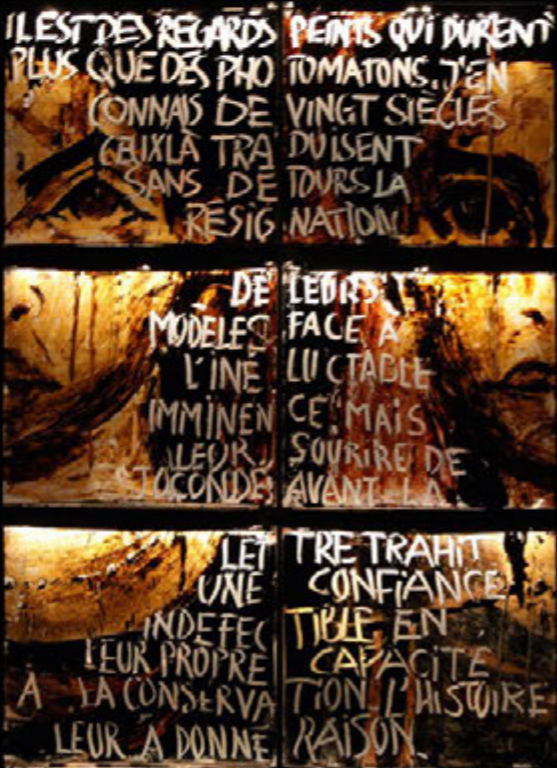 IL EST DES REGARDS PEINTS QUI DURENT
PLUS QUE DES PHOTOMATONS. J'EN
CONNAIS DE VINGT SIÈCLES
CEUX LÀ TRADUISENT
SANS DETOURS LA
RÉSIGNATION
DE LEURS
MODÈLES FACE A
L'INÉLUCTABLE
IMMINENCE. MAIS
LEUR SOURIRE DE
JOCONDES AVANT LA
LETTRE TRAHIT
UNE CONFIANCE
INDEFECTIBLE EN
LEUR PROPRE CAPACITÉ
A LA CONSERVATION. L'HISTOIRE
LEUR A DONNE RAISON.